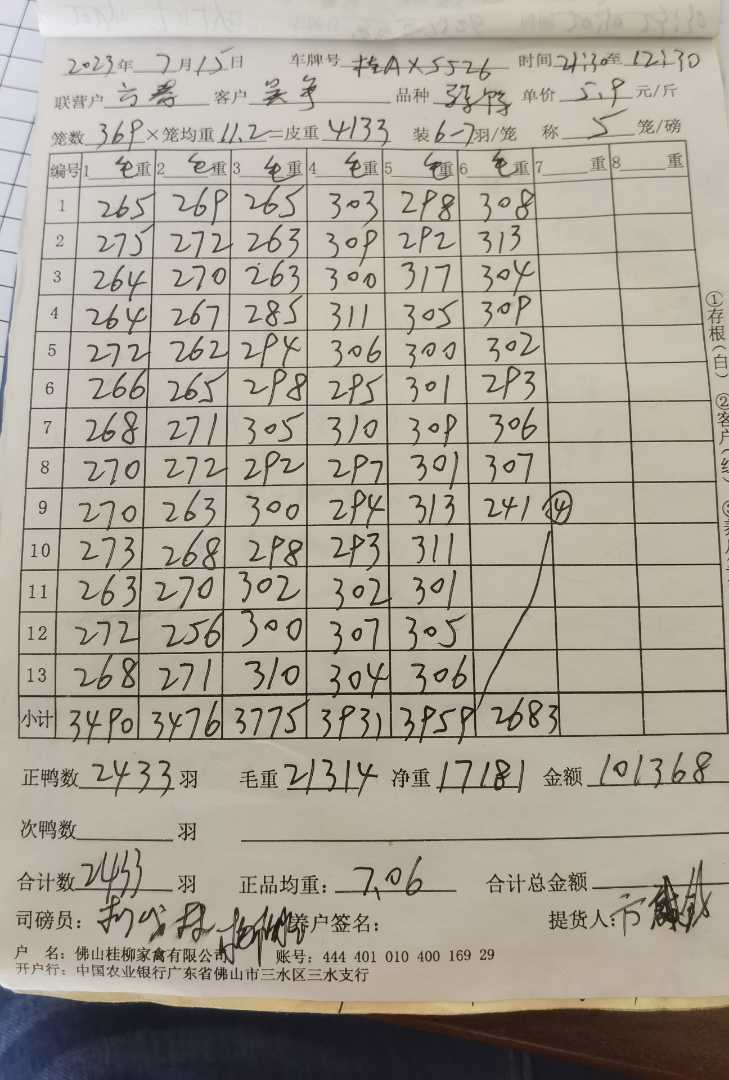 2023年 7月15日 车牌号 桂AX5526 时间21:30至12:30
联营户 客户 品种 单价 5.9 元/斤
笼数 369 ×笼均重 11.2 =皮重 4133 装 6-7 羽/笼 称 5 笼/磅
编号 1 毛重 2 毛重 3 毛重 4 毛重 5 毛重 6 毛重 7 重 8 重
1 265 269 265 303 298 308
2 275 272 263 309 292 313
3 264 270 263 300 317 304
4 264 267 285 311 305 309
5 272 262 294 306 300 302
6 266 265 298 295 301 293
7 268 271 305 310 309 306
8 270 272 292 297 301 307
9 270 263 300 294 313 241 ④
10 273 268 298 293 311
11 263 270 302 302 301
12 272 256 300 307 305
13 268 271 310 304 306
小计 3490 3476 3775 3931 3959 2683
正鸭数 2433 羽 毛重 21314 净重 17181 金额 101368
次鸭数 羽
合计数 2433 羽 正品均重: 7.06 合计总金额
司磅员: 养户签名: 提货人:
户 名: 佛山桂柳家禽有限公司 账号: 444 401 010 400 169 29
开户行: 中国农业银行广东省佛山市三水区三水支行
①存根(白) ②客户(红)